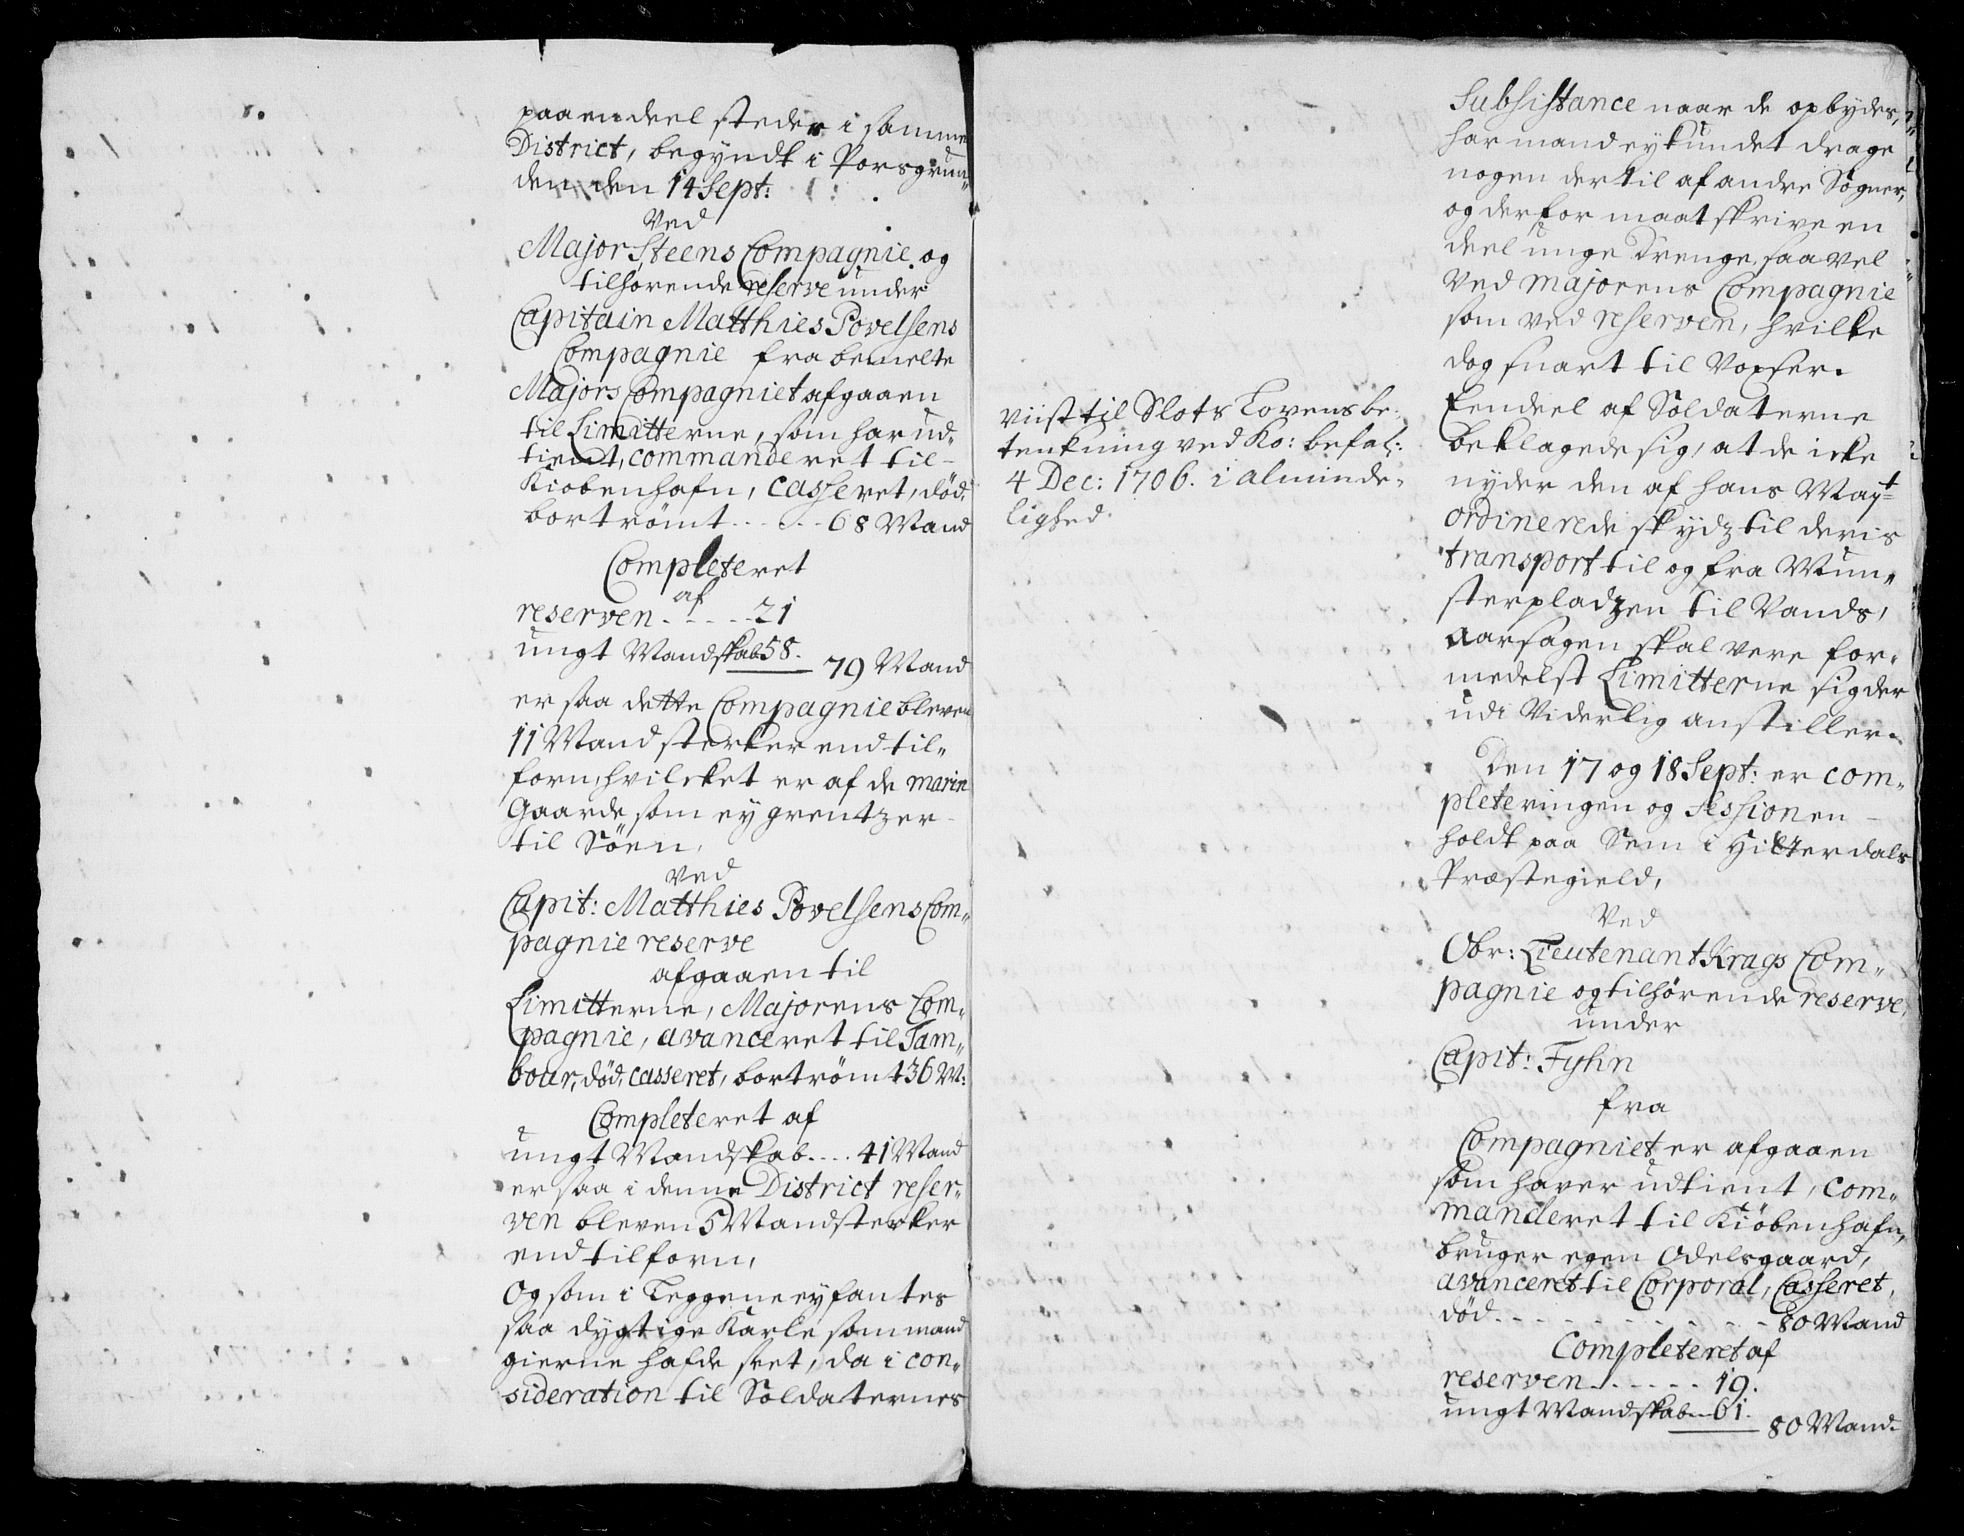 paa en deel steder i samme
District, begyndt i Porsgrun„
den den 14 Sept:
Ved
Major Steens Compagnie og
tilhørende reserve under
Capitain Matthies Povelsens
Compagnie fra bemelte
Majors Compagniet afgaaen
til Limitterne, som har ud„
tient, commanderet til
Kiøbenhafn, casseret, død,
bortrømt - - - - - 68 Mand
Completeret
af
reserven - - - - - 21
ungt Mandskab 58.
79 Mand
er saa dette Compagnie bleven
11 Mand sterker end til„
forn, hvilcket er af de marin
Gaarde som ey grentzer
til Søen,
Ved
Capit: Matthies Povelsens Com„
pagnie reserve
afgaaen til
Limitterne, Majorens Com„
pagnie, avanceret til Tam„
bour, død, casseret, bortrømt 36 M:
Completeret af
ungt Mandskab - - - - 41 Mand
er saa i denne District reser„
ven bleven 5 Mand sterker
end tilforn,
Og som i Leggene ey fantes
saa dygtige Karle som mand
gierne hafde seet, da i con„
sideration til Soldaternes
Subsistance naar de opbydes,
har mand ey kundet drage
nogen dertil af andre Sogner,
og derfor maat skrive en
deel unge Drenge, saa vel
ved Majorens Compagnie
som ved reserven, hvilke
dog snart til Voxser.
Eendeel af Soldaterne
beklagede sig, at de icke
nyder den af hans Mayt
ordinerede skydz til deris
transport til og fra Mun„
sterpladzen til Vands,
Aarsagen skal vere for„
medelst Limitterne sig der
udi Viderlig anstiller.
Viist til Slots Lovens be„
tenkning ved Ko: befal:
4 Dec: 1706. i alminde„
lighed.
Den 17 og 18 Sept: er com„
pleteringen og Sessionen
holdt paa Sem i Hitterdals
Præstegield,
Ved
Obr: Lieutenant Krags Com„
pagnie og tilhørende reserve
under
Capit: Fyhn
fra
Compagniet er afgaaen
som haver udtient, com„
manderet til Kiøbenhafn,
bruger egen Odelsgaard,
avanceret til Corporal, Casseret,
død - - - - - - - - - - 80 Mand
Completeret af
reserven - - - - - - 19.
ungt Mandskab - 61.
80 Mand.